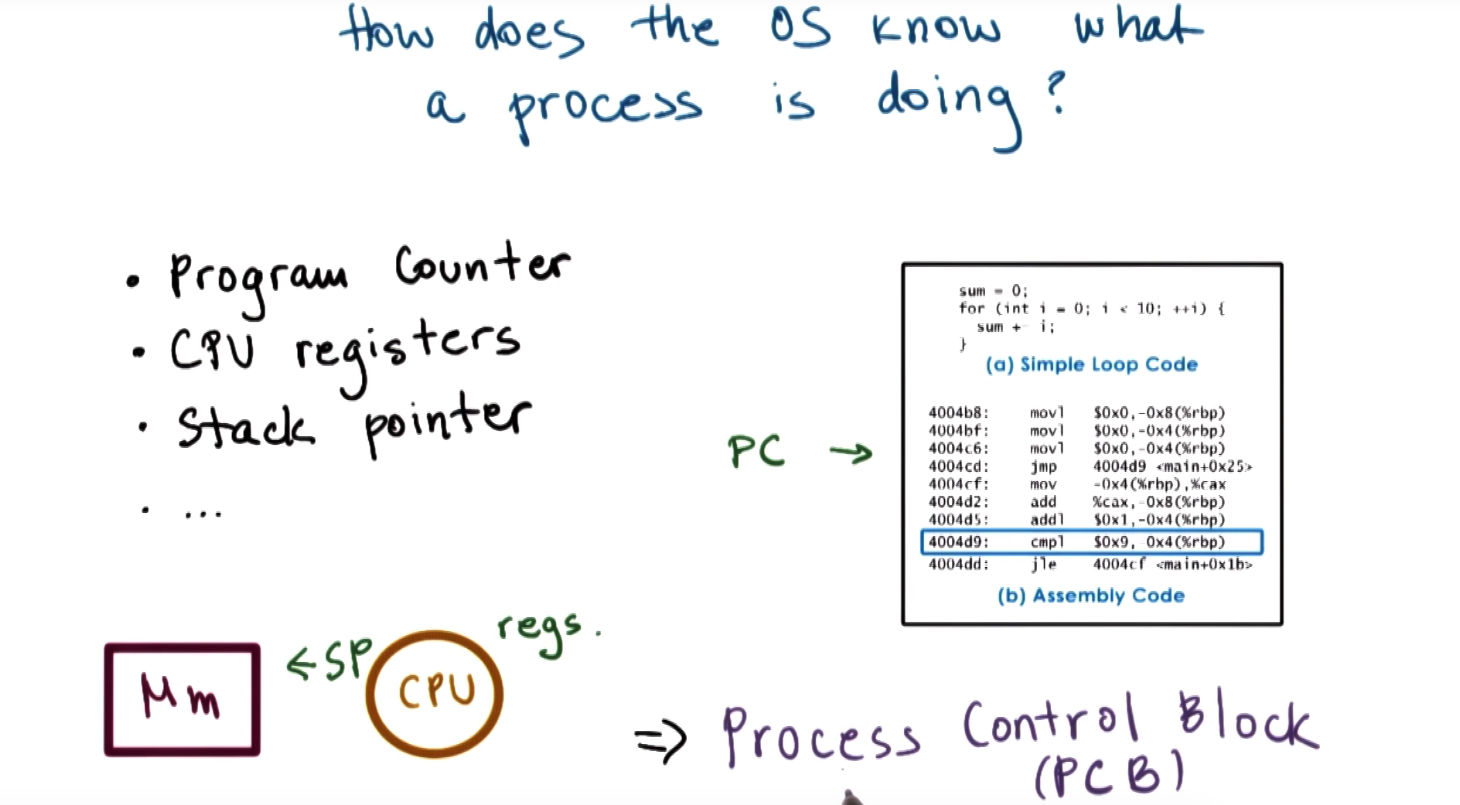 How does the OS know what
a process is doing?
• Program Counter
• CPU registers
• Stack pointer
• ...
PC →
sum = 0;
for (int i = 0; i < 10; ++i) {
sum + i;
}
(a) Simple Loop Code
4004b8: movl $0x0,-0x8(%rbp)
4004bf: movl $0x0,-0x4(%rbp)
4004c6: movl $0x0,-0x4(%rbp)
4004cd: jmp 4004d9 <main+0x25>
4004cf: mov -0x4(%rbp),%cax
4004d2: add %cax, 0x8(%rbp)
4004d5: addl $0x1,-0x4(%rbp)
4004d9: cmpl $0x9, 0x4(%rbp)
4004dd: jle 4004cf <main+0x1b>
(b) Assembly Code
Mm
← SP
CPU
regs.
⇒ Process Control Block
(PCB)